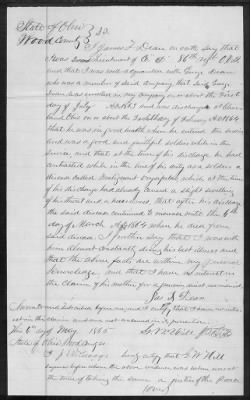 State of Ohio
Wood County } SS.
I James F. Dean on oath say that
I was Lieutenant of Co "C" 86th Regt O.V.I.
and that I was well acquainted with George Dean
who was a member of said company that said George
Dean was enrolled in my company on or about the first
day of July AD 1863 and was discharged at Cleve-
land Ohio on or about the day of February AD 1864
that he was in good health when he entered the service
and was a good and faithful soldier while in the
service and that at the time of his discharge he had
contracted while in the line of his duty as a soldier a
disease called Malignant erysipelas which at the time
of his discharge had already caused a slight swelling
of the throat and a hoarseness, that after his discharge
the said disease continued to manner until the 6th
day of March AD 1864 when he died from
said disease. I further say that I was with
him almost constantly during his last illness and
that the above facts are within my personal
knowledge, and that I have no interest in
the claim of his mother for a pension
Jas F. Dean
Sworn to and subscribed before me, and I certify that I have no inter-
est in this claim and am not concerned in its prosecution
This 6 day of May 1865
State of Ohio Wood County SS
I certify that G W Hill
Esquire before whom the above was taken was at
the time of taking the same a Justice of the Peace
(over)